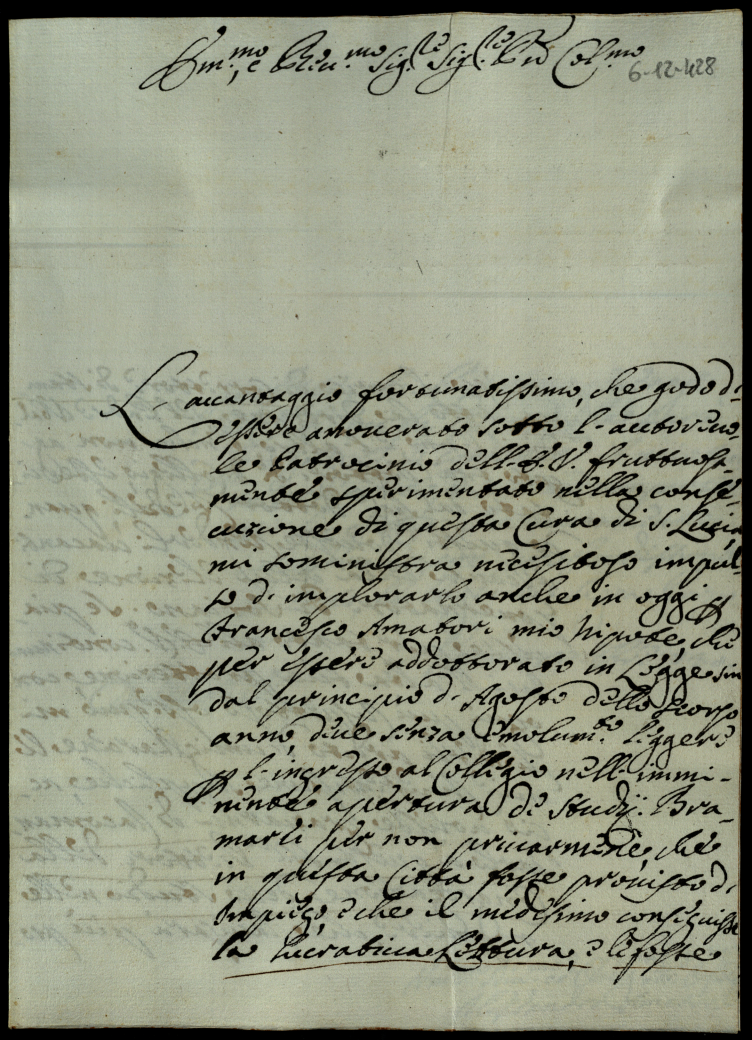 Em.mo e Rev.mo Sig.re Sig.re P'ron Col.mo
6-12-428
L'avantaggio fortunatissimo, che godo d'
essere anoverato sotto l'autorevo-
le Patrocinio dell'E.V. fruttuosa-
mente sperimentato nella conse-
cuzione di questa Cura di S. Lucia,
mi somministra necessitoso impul-
so d'implorarlo anche in oggi p
Francesco Amatori mio Nipote, che
per essere addottorato in Legge sin
dal principio d'Agosto dello scorso
anno, deve senza emolum.to leggere
p l'ingresso al Collegio nell'immi-
nente apertura de Studij. Bra-
marei per non privarmene, che
in questa Città fosse provisto d'
Impiego, e che il medesimo conseguisse
la lucrativa Lettura, e le fosse